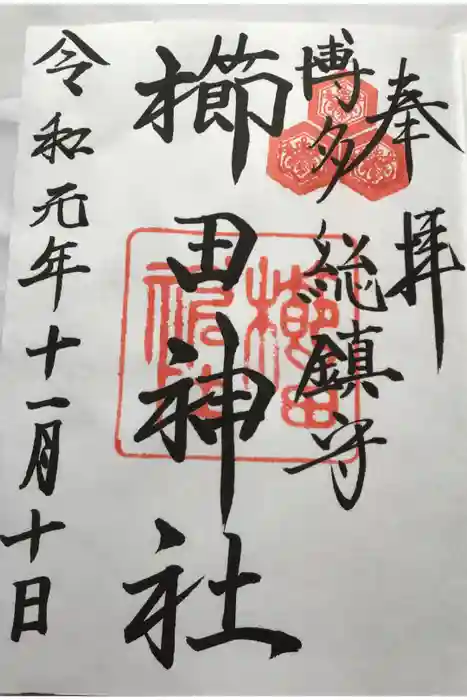 奉拝
博多総鎮守
櫛田神社
令和元年十一月十日